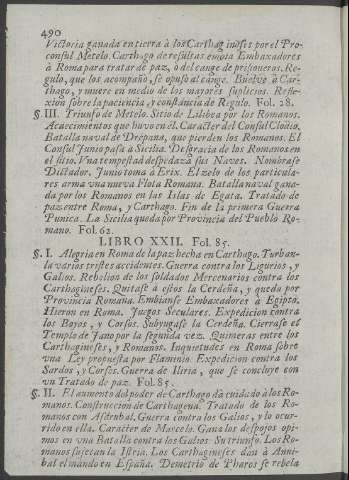 490
Victoria ganada en tierra à los Carthagineses por el Pro-
consul Metelo. Carthago de resultas embia Embaxadores
à Roma para tratar de paz, ò del cange de prisioneros. Re-
gulo, que los acompaño, se opuso al cange. Buelve à Car-
thago, y muere en medio de los mayores suplicios. Refle-
xion sobre la paciencia, y constancia de Regulo. Fol. 28.
§. III. Triunfo de Metelo. Sitio de Lilibea por los Romanos.
Acaecimientos que huvo en el. Caracter del Consul Clodio.
Batalla naval de Drepana, que pierden los Romanos. El
Consul Junio pasa à Sicilia. Desgracia de los Romanos en
el sitio. Vna tempestad despedaza sus Naves. Nombrase
Dictador. Junio toma à Erix. El zelo de los particula-
res arma vna nueva Flota Romana. Batalla naval gana-
da por los Romanos en las Islas de Egata. Tratado de
paz entre Roma, y Carthago. Fin de la primera Guerra
Punica. La Sicilia queda por Provincia del Pueblo Ro-
mano. Fol. 62.
LIBRO XXII. Fol. 85.
§. I. Alegria en Roma de la paz hecha en Carthago. Turban-
la varios tristes accidentes. Guerra contra los Ligurios, y
Galios. Rebelion de los soldados Mercenarios contra los
Carthagineses. Quitase à estos la Cerdeña, y queda por
Provincia Romana. Embianse Embaxadores à Egipto.
Hieron en Roma. Juegos Seculares. Expedicion contra
los Boyos, y Corsos. Subyugase la Cerdeña. Cierrase el
Templo de Jano por la segunda vez. Quimeras entre los
Carthagineses, y Romanos. Inquietudes en Roma sobre
vna Ley propuesta por Flaminio. Expedicion contra los
Sardos, y Corsos. Guerra de Iliria, que se concluye con
vn Tratado de paz. Fol. 85.
§. II. El aumento del poder de Carthago dà cuidado à los Ro-
manos. Construccion de Carthagena. Tratado de los Ro-
manos con Asdrubal. Guerra contra los Galios, y lo ocur-
rido en ella. Caracter de Marcelo. Gana los despojos opi-
mos en vna Batalla contra los Galios. Su triunfo. Los Ro-
manos sujetan la Istria. Los Carthagineses dan à Anni-
bal el mando en España. Demetrio de Pharos se rebela